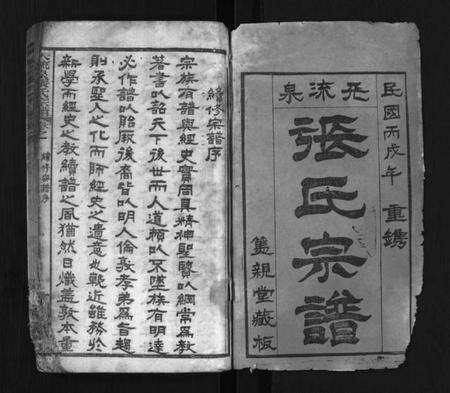 民國丙戌年　重鐫
流泉
張氏宗譜
雙親堂藏板
續修宗譜序
宗族有譜與經史實同具精神聖賢以綱常為教
著書以詔天下後世而人道賴以不墜族有明達
必作譜以貽厥後裔皆以明人倫敦孝弟為旨趣
則承聖人之化而師經史之遺意也輓近雖務於
新學而經史之教續譜之風猶然日熾蓋敦本重
續修宗譜序